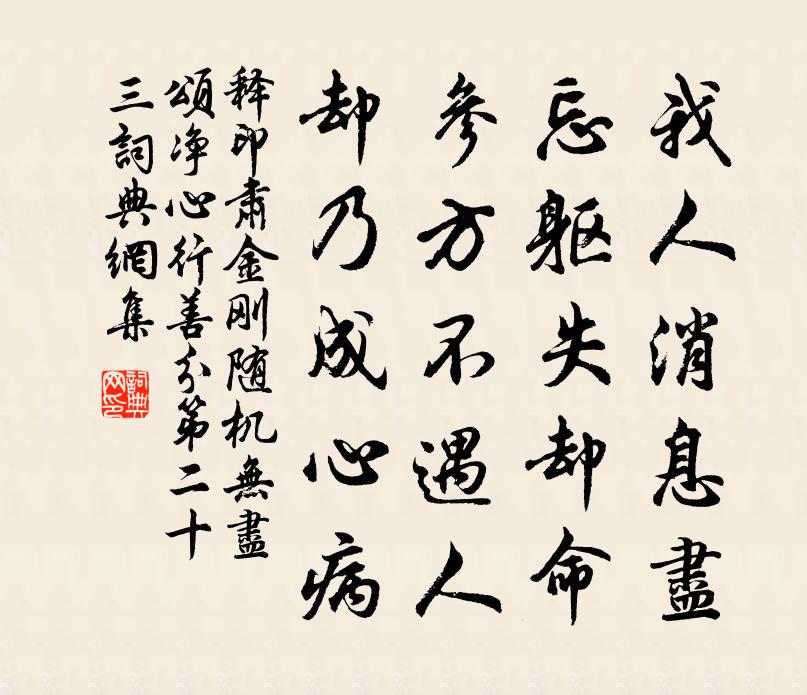 我人消息盡
忘軀失却命
參方不遇人
却乃成心病
释印肅金刚随机無盡
頌净心行善分第二十
三詞典網集
詞典网印